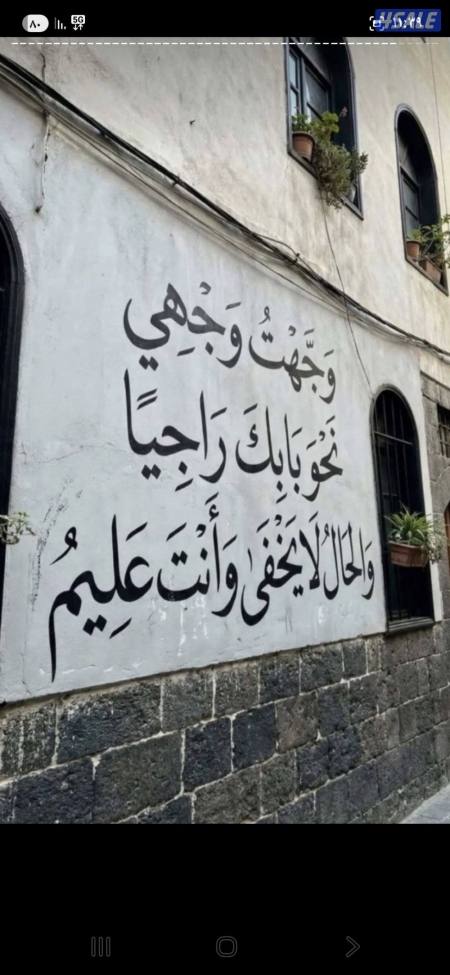 ٨٠ 5G 4SALE
وَجَّهْتُ وَجْهِي
نَحْوَ بَابِكَ رَاجِيًا
وَالحَالُ لَا يَخْفَى وَأَنْتَ عَلِيمُ